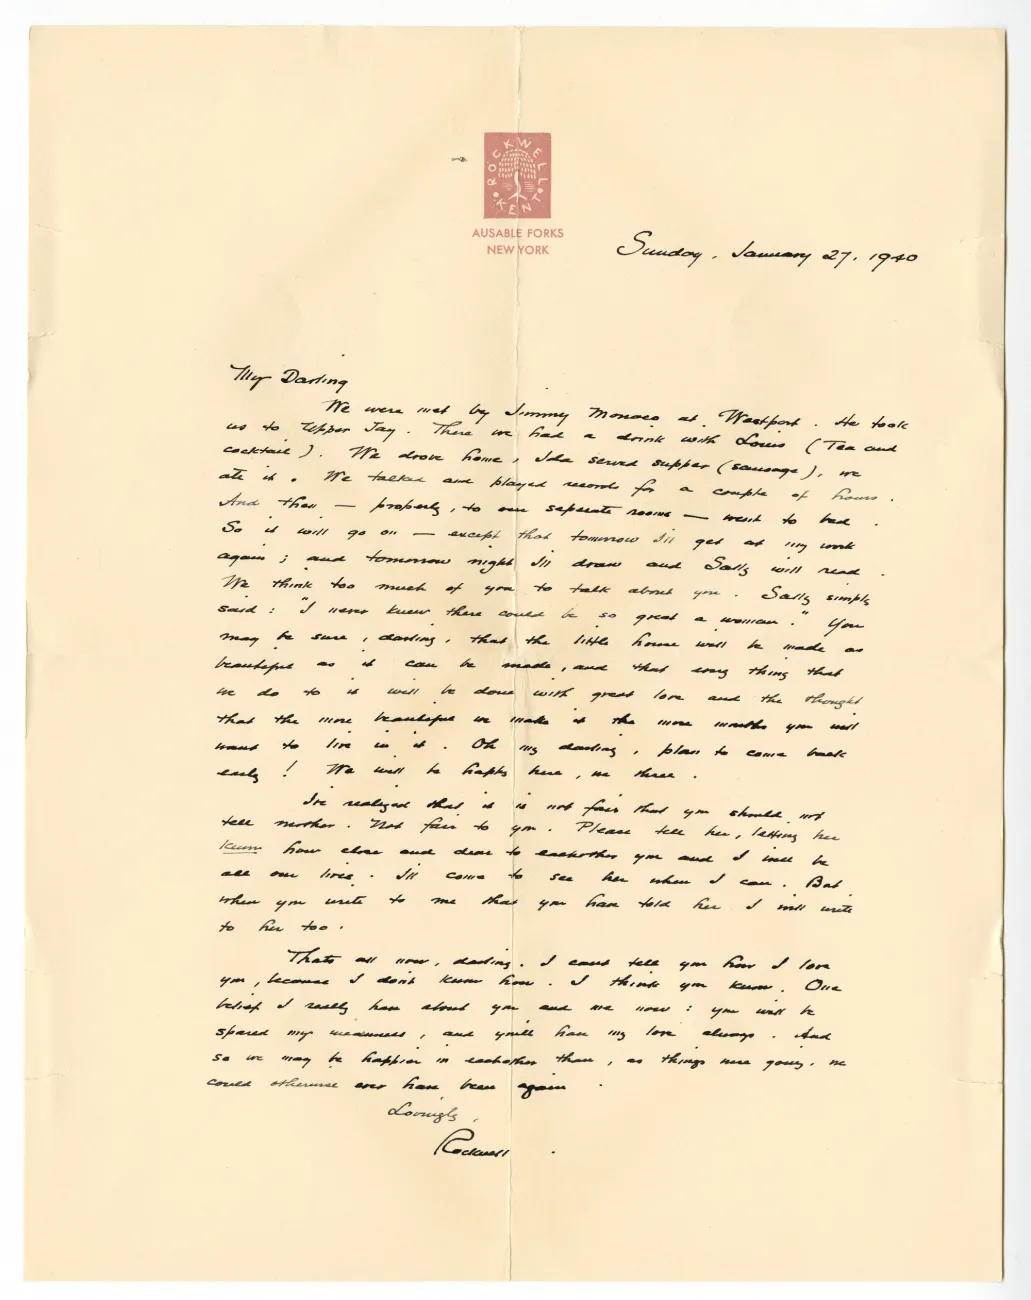 ROCKWELL
KENT
AUSABLE FORKS
NEW YORK
Sunday, January 27, 1940
My Darling
We were met by Jimmy Monaco at Westport. He took
us to Upper Jay. There we had a drink with Louis (Tea and
cocktail). We drove home, Ida served supper (sausage), we
ate it. We talked and played records for a couple of hours.
And then — properly, to our seperate rooms — went to bed.
So it will go on — except that tomorrow I'll get at my work
again; and tomorrow night I'll draw and Sally will read.
We think too much of you to talk about you. Sally simply
said: "I never knew there could be so great a woman." You
may be sure, darling, that the little house will be made as
beautiful as it can be made, and that every thing that
we do to it will be done with great love and the thought
that the more beautiful we make it the more months you will
want to live in it. Oh my darling, plan to come back
early! We will be happy here, we three.
I've realized that it is not fair that you should not
tell mother. Not fair to you. Please tell her, letting her
know how close and dear to eachother you and I will be
all our lives. I'll come to see her when I can. But
when you write to me that you have told her I will write
to her too.
Thats all now, darling. I cant tell you how I love
you, because I don't know how. I think you know. One
belief I really have about you and me now: you will be
spared my weakness, and you'll have my love always. And
so we may be happier in eachother than, as things were going, we
could otherwise ever have been again.
Lovingly,
Rockwell.